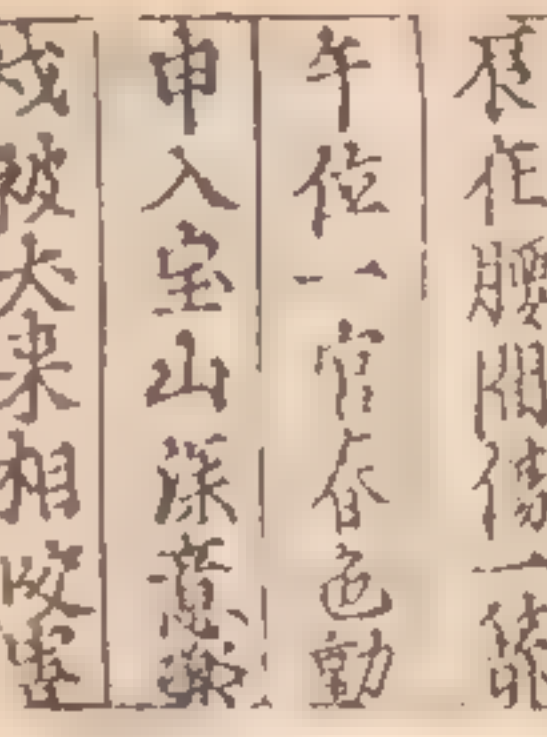 辰作腰間傷一
午位一官春色動
申入宝山深意
戌被犬来相咬